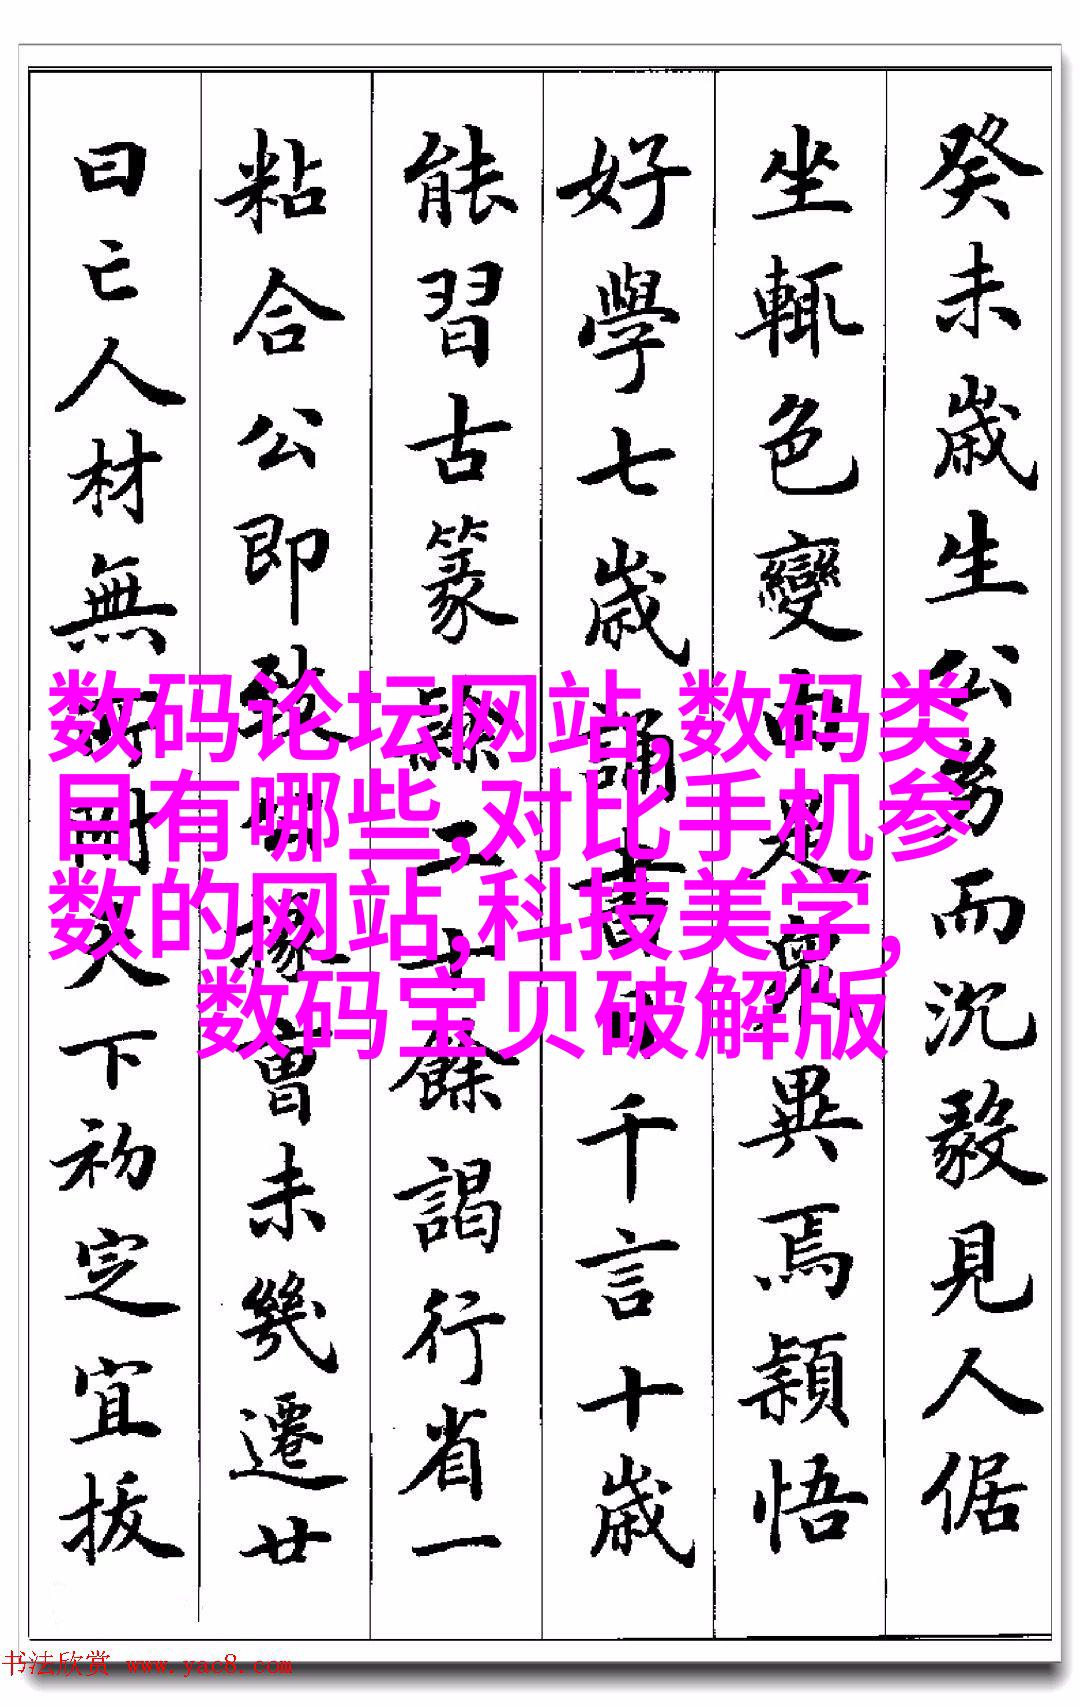 癸未歲生公而沉毅見人倨
坐輒色變而走衆異焉穎悟
好學七歲誦書日千言十歲
能習古篆隸二十餘謁行省一
粘合公即掾曹未幾遷廿
曰亡人材無所用天下初定宜拔
数码论坛网站,数码类
目有哪些,对比手机参
数的网站,科技美学,
数码宝贝破解版
书法欣赏 www.yac8.com